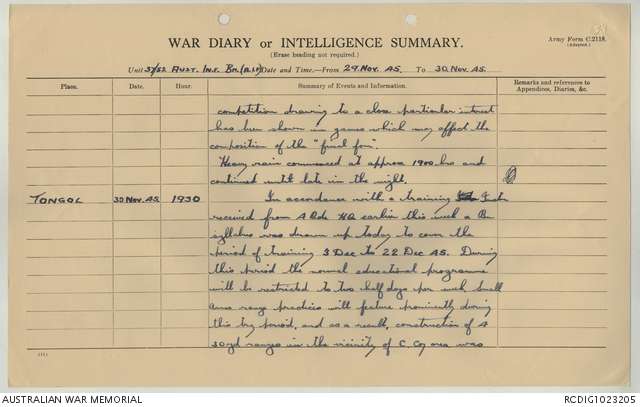 Army Form C.2118.
(Adapted.)
WAR DIARY or INTELLIGENCE SUMMARY.
(Erase heading not required.)
Unit 57/52 AUST. INF. BN. (A.I.F) Date and Time.—From 29. NOV. 45. To 30. NOV. 45.
Place. Date. Hour. Summary of Events and Information. Remarks and references to Appendices, Diaries, &c.
competition drawing to a close particular interest
has been shown in games which may affect the
composition of the "final four".
Heavy rain commenced at approx 1900 hrs and
continued until late in the night.
TONGOL 30 NOV. 45 1930 In accordance with a training
received from 4 Bde HQ earlier this week a Bn
syllabus was drawn up today to cover the
period of training 3 Dec to 22 Dec 45. During
this period the normal educational programme
will be restricted to two half days per week. Small
arms range practices will feature prominently during
this trg period, and as a result, construction of 4
30yd ranges in the vicinity of C. Coy area was
AUSTRALIAN WAR MEMORIAL
RCDIG1023205